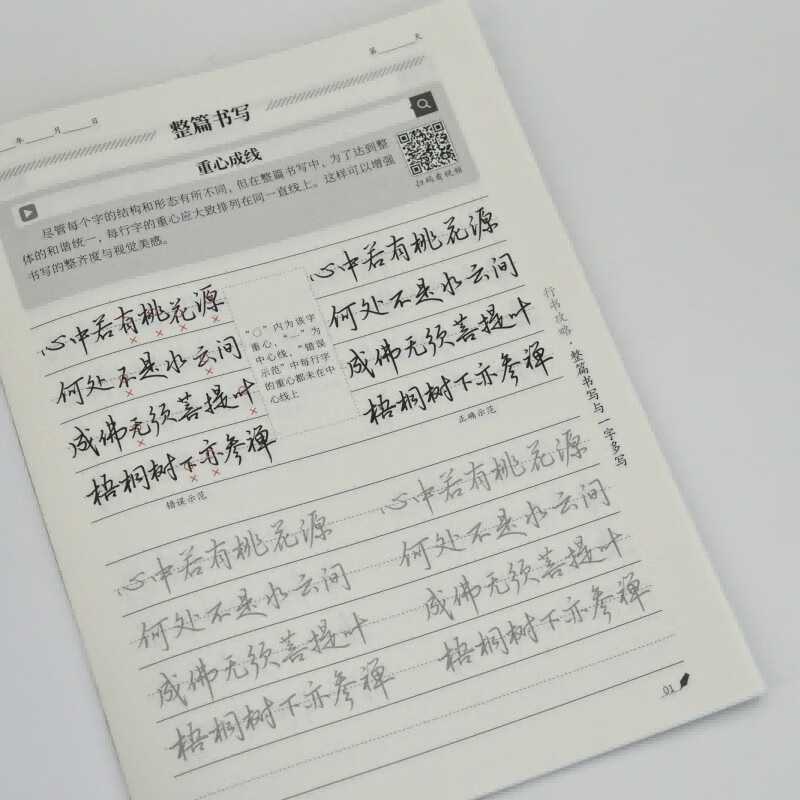 第____天
____年____月____日
整篇书写
重心成线
尽管每个字的结构和形态有所不同，但在整篇书写中，为了达到整
体的和谐统一，每行字的重心应大致排列在同一直线上。这样可以增强
书写的整齐度与视觉美感。
扫码看视频
心中若有桃花源
何处不是水云间
成佛无须菩提叶
梧桐树下亦参禅
错误示范
“○”内为该字
重心，“—”为
中心线，“错误
示范”中每行字
的重心都未在中
心线上
心中若有桃花源
何处不是水云间
成佛无须菩提叶
梧桐树下亦参禅
正确示范
行书攻略·整篇书写与一字多写
心中若有桃花源
何处不是水云间
成佛无须菩提叶
梧桐树下亦参禅
心中若有桃花源
何处不是水云间
成佛无须菩提叶
梧桐树下亦参禅
01